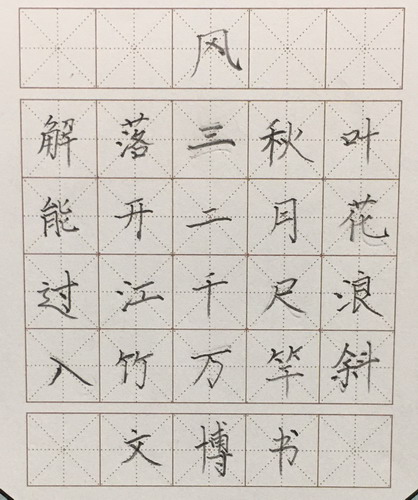 风
解落三秋叶
能开二月花
过江千尺浪
入竹万竿斜
文博书